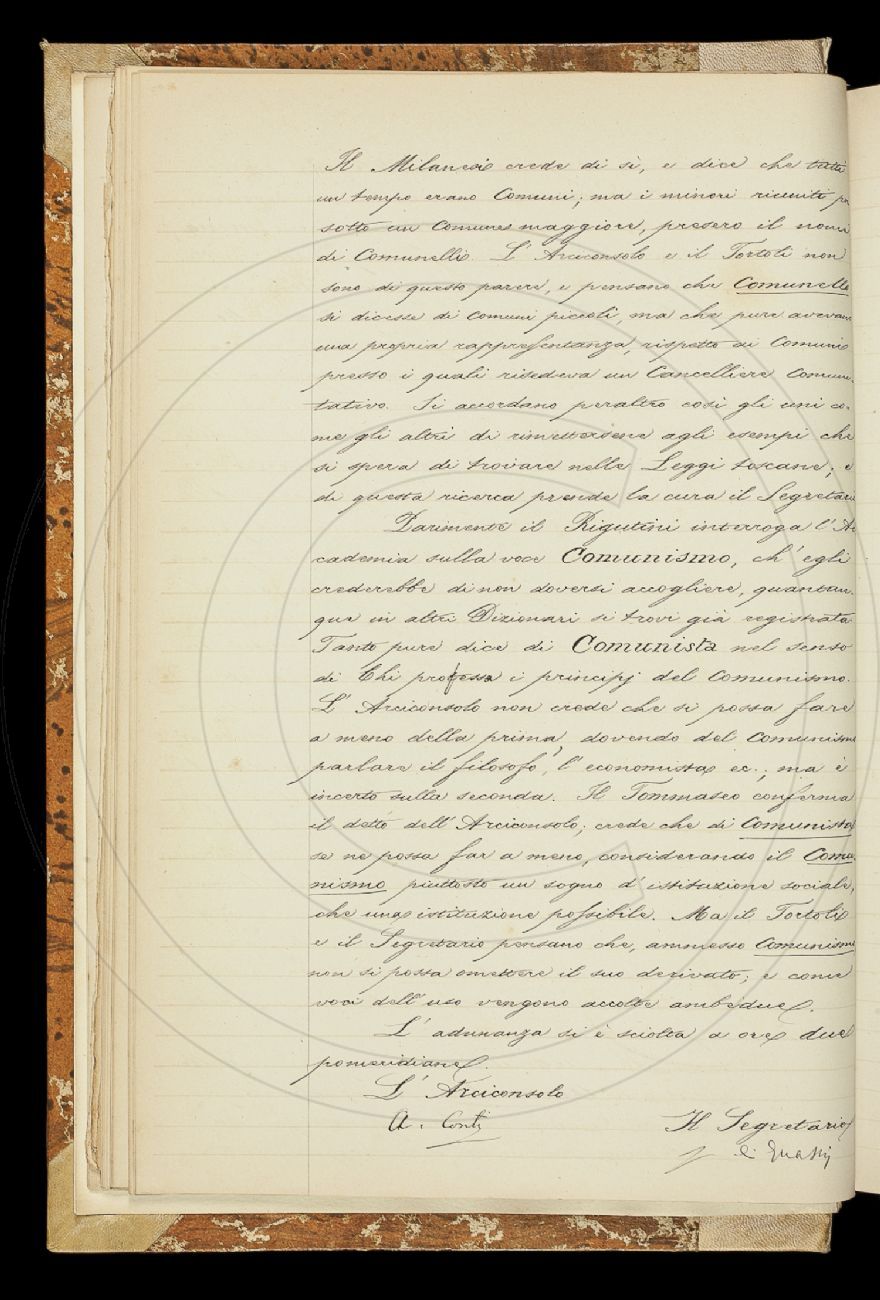 Il Milanesi crede di sì, e dice che tutti
un tempo erano Comuni; ma i minori riuniti
sotto un Comune maggiore, presero il nome
di Comunelli. L'Arciconsolo e il Tortoli non
sono di questo parere, e pensano che Comunello
si dicesse di comuni piccoli, ma che pure avevano
una propria rappresentanza, rispetto ai Comuni
presso i quali risedeva un Cancelliere Comuni-
tativo. Si accordano peraltro così gli uni co-
me gli altri di rimettersene agli esempi che
si spera di trovare nelle Leggi toscane; e
di questa ricerca prende la cura il Segretario
Parimente il Rigutini interroga l'Ac
cademia sulla voce Comunismo, ch'egli
crederebbe di non doversi accogliere, quantun-
que in altri Dizionari si trovi già registrata
Tanto pure dice di Comunista nel senso
di Chi professa i principj del Comunismo.
L'Arciconsolo non crede che si possa fare
a meno della prima, dovendo del Comunismo
parlare il filosofo, l'economista ec.; ma è
incerto sulla seconda. Il Tommaseo conferma
il detto dell'Arciconsolo; crede che di Comunista
se ne possa far a meno, considerando il Comu-
nismo piuttosto un sogno d'istituzione sociale,
che una istituzione possibile. Ma il Tortoli
e il Segretario pensano che, ammesso Comunismo
non si possa omettere il suo derivato; e come
voci dell'uso vengono accolte ambedue.
L'adunanza si è sciolta a ore due
pomeridiane.
L'Arciconsolo
A. Conti
Il Segretario